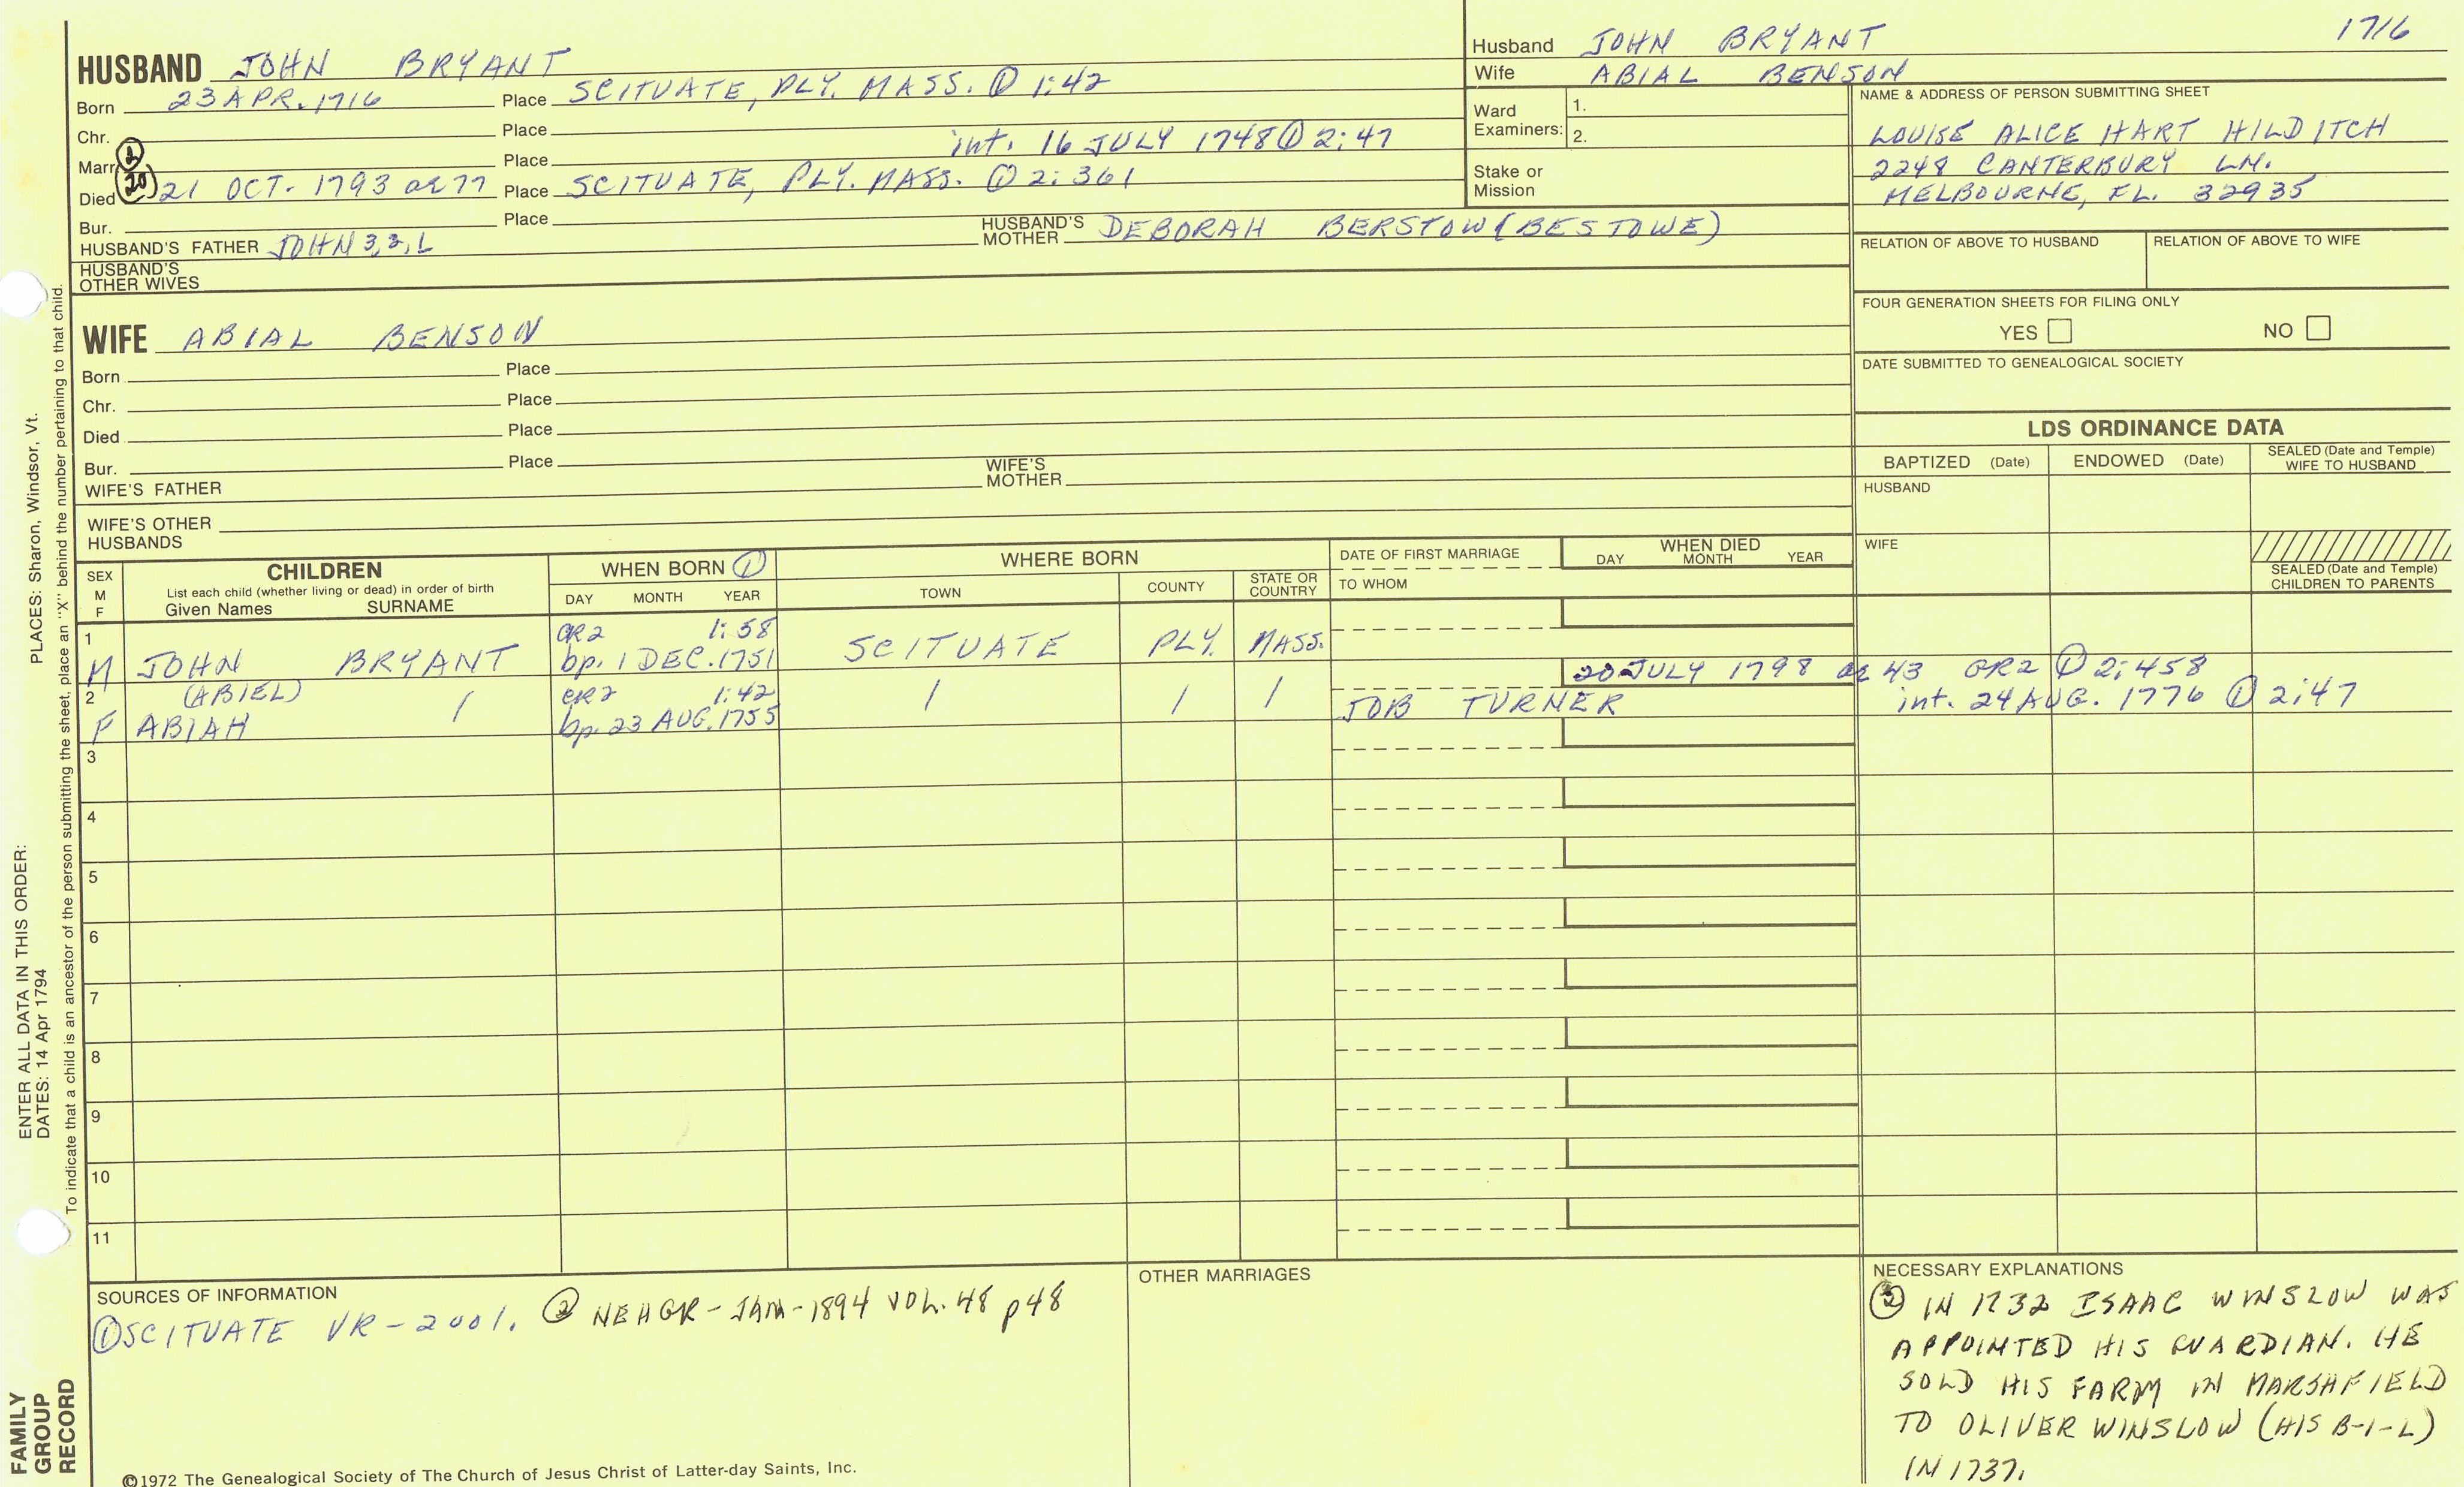 HUSBAND JOHN BRYANT
Born 23 APR. 1716 Place SCITUATE, PLY. MASS. ① 1:42
Chr. Place
Marr. ② Place int. 16 JULY 1748 ① 2:47
Died (20) 21 OCT. 1793 ae 77 Place SCITUATE, PLY. MASS. ① 2:361
Bur. Place
HUSBAND'S FATHER JOHN 3, 2, 1 HUSBAND'S MOTHER DEBORAH BERSTOW (BESTOWE)
HUSBAND'S OTHER WIVES
Husband JOHN BRYANT 1716
Wife ABIAL BENSON
Ward Examiners: 1.
2.
Stake or Mission
NAME & ADDRESS OF PERSON SUBMITTING SHEET
LOUISE ALICE HART HILDITCH
2248 CANTERBURY LN.
MELBOURNE, FL. 32935
RELATION OF ABOVE TO HUSBAND RELATION OF ABOVE TO WIFE
FOUR GENERATION SHEETS FOR FILING ONLY
YES NO
DATE SUBMITTED TO GENEALOGICAL SOCIETY
WIFE ABIAL BENSON
Born Place
Chr. Place
Died Place
Bur. Place
WIFE'S FATHER WIFE'S MOTHER
WIFE'S OTHER HUSBANDS
LDS ORDINANCE DATA
BAPTIZED (Date) ENDOWED (Date) SEALED (Date and Temple) WIFE TO HUSBAND
HUSBAND
WIFE
SEALED (Date and Temple) CHILDREN TO PARENTS
SEX M F
CHILDREN
List each child (whether living or dead) in order of birth
Given Names SURNAME
WHEN BORN ①
DAY MONTH YEAR
WHERE BORN
TOWN COUNTY STATE OR COUNTRY
DATE OF FIRST MARRIAGE
TO WHOM
WHEN DIED
DAY MONTH YEAR
1 CR2 1:58
M JOHN BRYANT bp. 1 DEC. 1751 SCITUATE PLY. MASS.
2 (ABIEL) / CR2 1:42 / / / 20 JULY 1798 ae 43 GR2 ① 2:458
F ABIAH bp. 23 AUG. 1755 JOB TURNER int. 24 AUG. 1776 ① 2:47
3
4
5
6
7
8
9
10
11
SOURCES OF INFORMATION
① SCITUATE VR-2001. ② NEHGR-JAN-1894 VOL. 48 p48
OTHER MARRIAGES
NECESSARY EXPLANATIONS
② IN 1732 ISAAC WINSLOW WAS
APPOINTED HIS GUARDIAN. HE
SOLD HIS FARM IN MARSHFIELD
TO OLIVER WINSLOW (HIS B-I-L)
IN 1737.
©1972 The Genealogical Society of The Church of Jesus Christ of Latter-day Saints, Inc.
FAMILY
GROUP
RECORD
ENTER ALL DATA IN THIS ORDER:
DATES: 14 Apr 1794
PLACES: Sharon, Windsor, Vt.
To indicate that a child is an ancestor of the person submitting the sheet, place an "X" behind the number pertaining to that child.